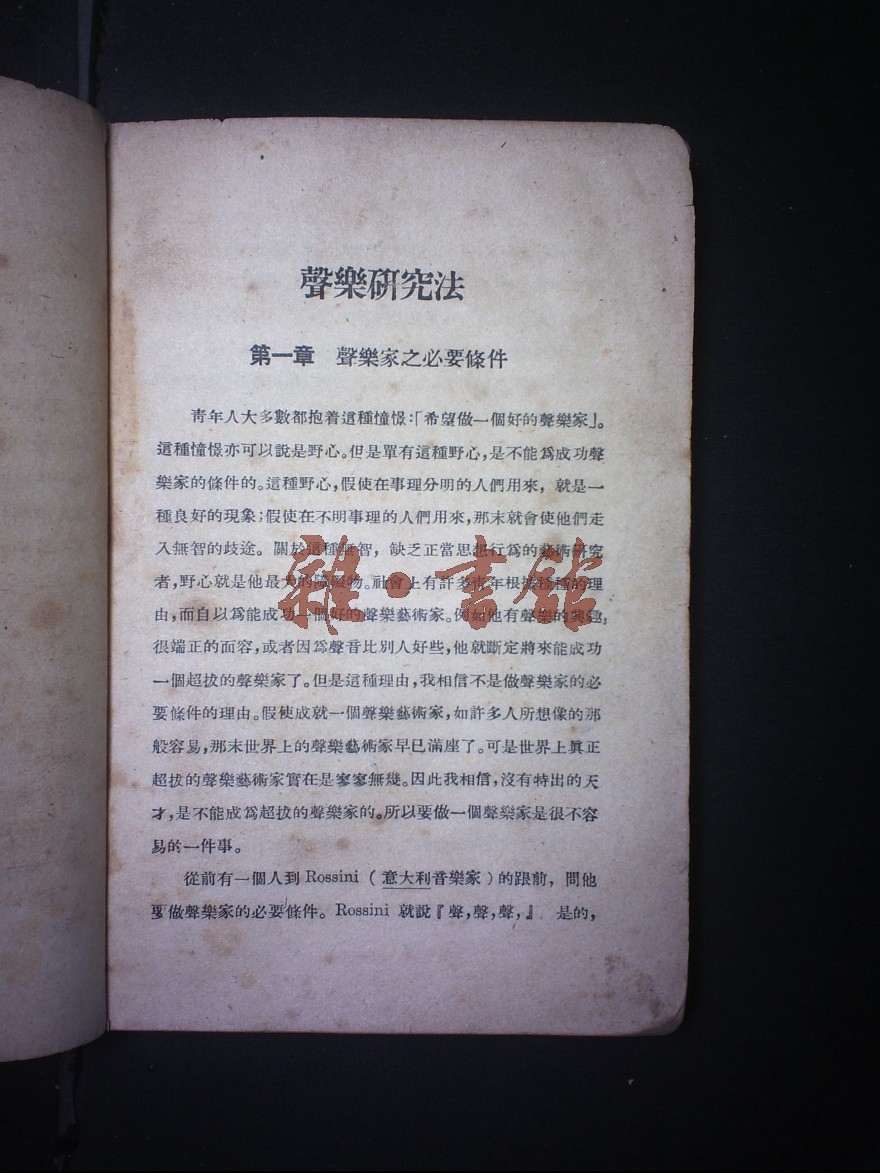 聲樂研究法
第一章　聲樂家之必要條件
青年人大多數都抱着這種憧憬:「希望做一個好的聲樂家」。
這種憧憬亦可以說是野心。但是單有這種野心,是不能爲成功聲
樂家的條件的。這種野心,假使在事理分明的人們用來，就是一
種良好的現象;假使在不明事理的人們用來,那末就會使他們走
入無智的歧途。關於這種無智，缺乏正當思想行爲的藝術研究
者,野心就是他最大的障礙物。社會上有許多青年根據種種的理
由,而自以爲能成功一個好的聲樂藝術家。例如他有聲樂的興趣,
很端正的面容,或者因爲聲音比別人好些,他就斷定將來能成功
一個超拔的聲樂家了。但是這種理由,我相信不是做聲樂家的必
要條件的理由。假使成就一個聲樂藝術家,如許多人所想像的那
般容易,那末世界上的聲樂藝術家早已滿座了。可是世界上眞正
超拔的聲樂藝術家實在是寥寥無幾。因此我相信,沒有特出的天
才,是不能成爲超拔的聲樂家的。所以要做一個聲樂家是很不容
易的一件事。
從前有一個人到 Rossini（意大利音樂家）的跟前，問他
要做聲樂家的必要條件。Rossini 就說『聲,聲,聲,』 是的,
雜·書館